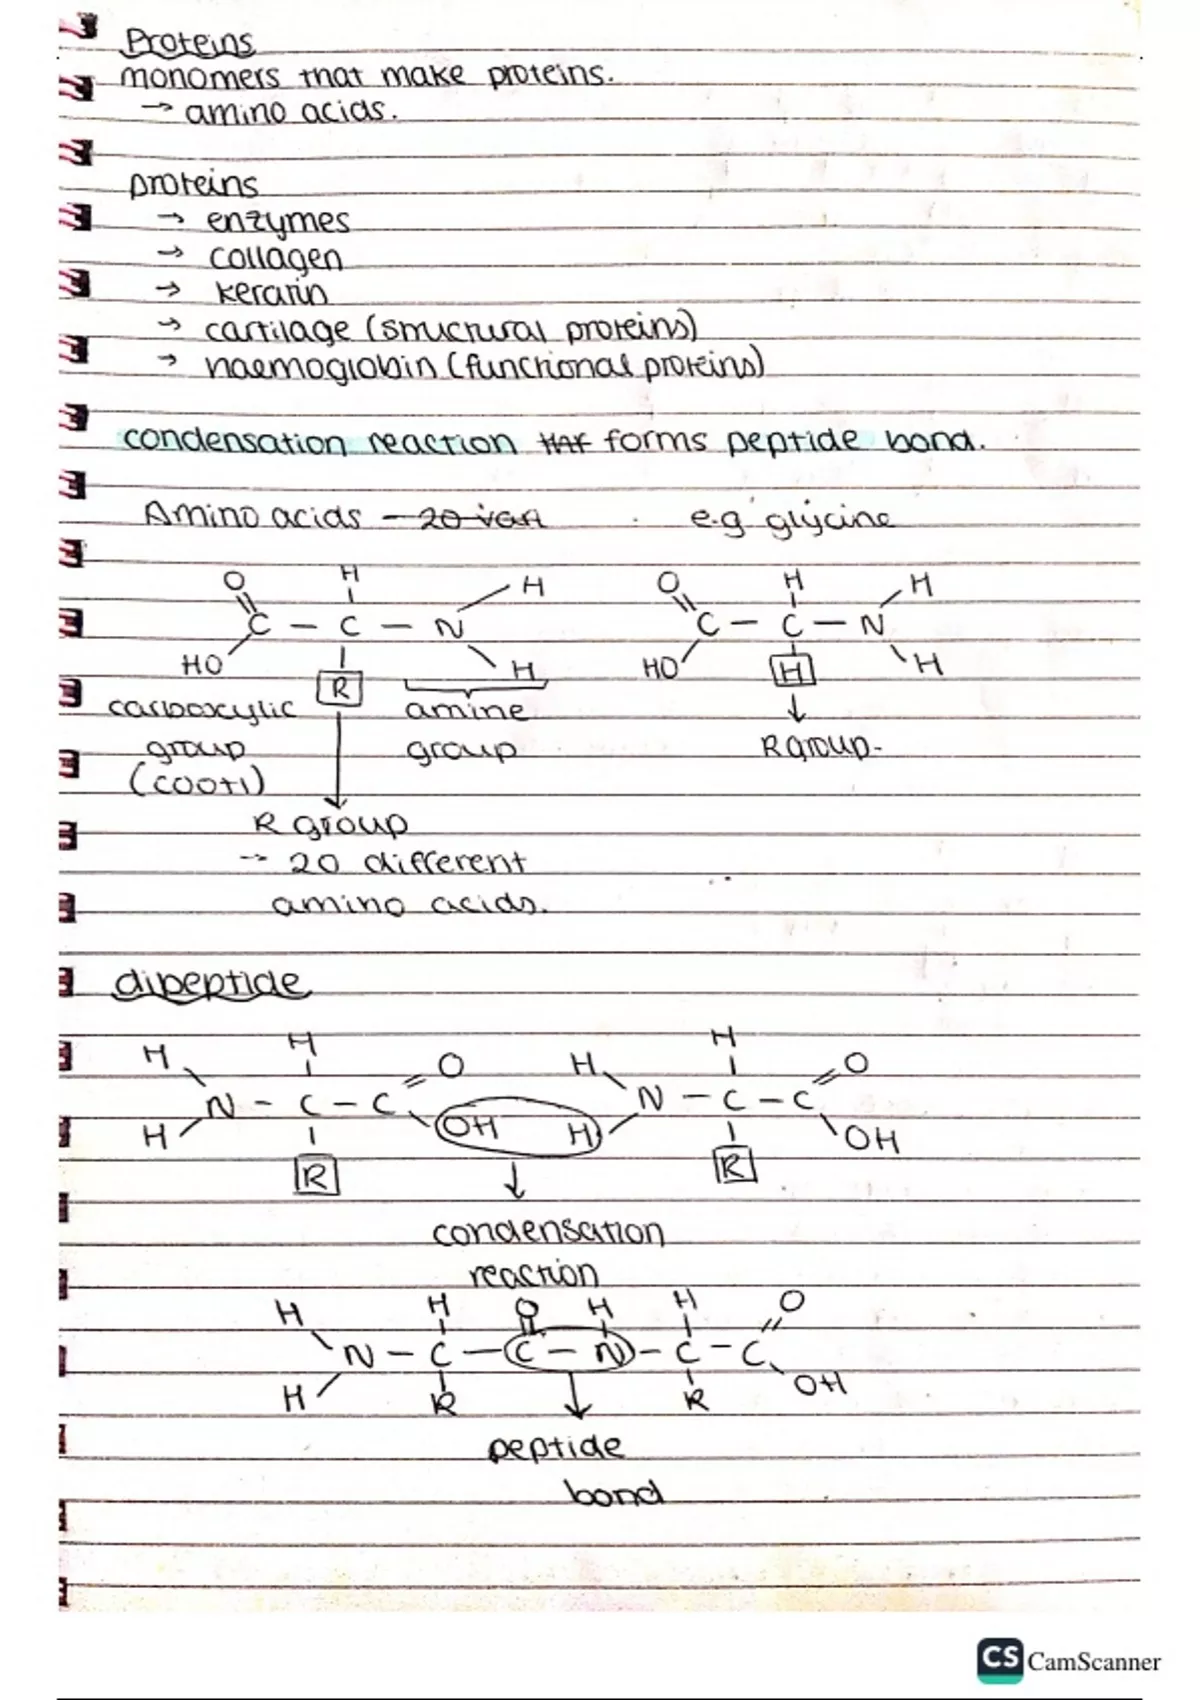 Proteins
monomers that make proteins.
→ amino acids.
proteins
→ enzymes
→ collagen
→ keratin
→ cartilage (structural proteins)
→ haemoglobin (functional proteins)
condensation reaction that forms peptide bond.
Amino acids - 20 vari e.g glycine
O H H O H H
C - C - N C - C - N
HO R H HO H H
carboxylic amine
group group R group.
(COOH)
R group
→ 20 different
amino acids.
dipeptide
H H O H H O
N - C - C N - C - C
H OH H OH
R R
condensation
reaction
H H O H H O
N - C - C - N - C - C
H R R OH
peptide
bond
CS CamScanner